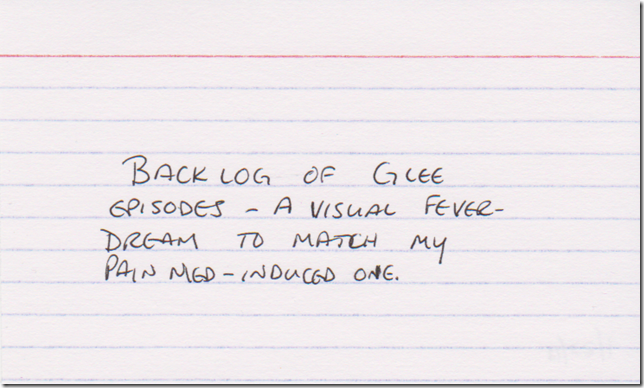 BACKLOG OF GLEE
EPISODES - A VISUAL FEVER-
DREAM TO MATCH MY
PAIN MED-INDUCED ONE.